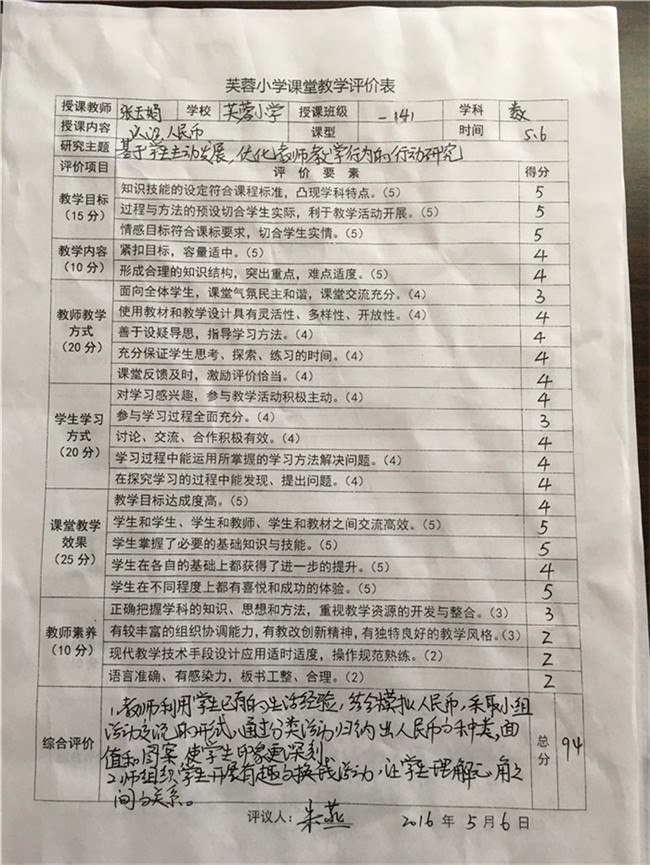 芙蓉小学课堂教学评价表
授课教师 张玉娟 学校 芙蓉小学 授课班级 一141 学科 数
授课内容 认识人民币 课型 时间 5.6
研究主题 基于学生主动发展,优化教师教学行为的行动研究
评价项目 评 价 要 素 得分
教学目标(15分)
知识技能的设定符合课程标准,凸现学科特点。(5) 5
过程与方法的预设切合学生实际,利于教学活动开展。(5) 5
情感目标符合课标要求,切合学生实情。(5) 5
教学内容(10分)
紧扣目标,容量适中。(5) 4
形成合理的知识结构,突出重点,难点适度。(5) 4
教师教学方式(20分)
面向全体学生,课堂气氛民主和谐,课堂交流充分。(4) 3
使用教材和教学设计具有灵活性、多样性、开放性。(4) 4
善于设疑导思,指导学习方法。(4) 4
充分保证学生思考、探索、练习的时间。(4) 4
课堂反馈及时,激励评价恰当。(4) 4
学生学习方式(20分)
对学习感兴趣,参与教学活动积极主动。(4) 4
参与学习过程全面充分。(4) 3
讨论、交流、合作积极有效。(4) 4
学习过程中能运用所掌握的学习方法解决问题。(4) 4
在探究学习的过程中能发现、提出问题。(4) 4
课堂教学效果(25分)
教学目标达成度高。(5) 4
学生和学生、学生和教师、学生和教材之间交流高效。(5) 5
学生掌握了必要的基础知识与技能。(5) 5
学生在各自的基础上都获得了进一步的提升。(5) 4
学生在不同程度上都有喜悦和成功的体验。(5) 5
教师素养(10分)
正确把握学科的知识、思想和方法,重视教学资源的开发与整合。(3) 3
有较丰富的组织协调能力,有教改创新精神,有独特良好的教学风格。(3) 2
现代教学技术手段设计应用适时适度,操作规范熟练。(2) 2
语言准确、有感染力,板书工整、合理。(2) 2
综合评价
1.教师利用学生已有的生活经验,结合模拟人民币,采取小组
活动交流的形式,通过分类活动归纳出人民币的种类,面
值和图案,使学生印象更深刻。
2.师组织学生开展有趣的换钱活动,让学生理解元、角之
间的关系。
总分 94
评议人: 朱燕 2016年5月6日